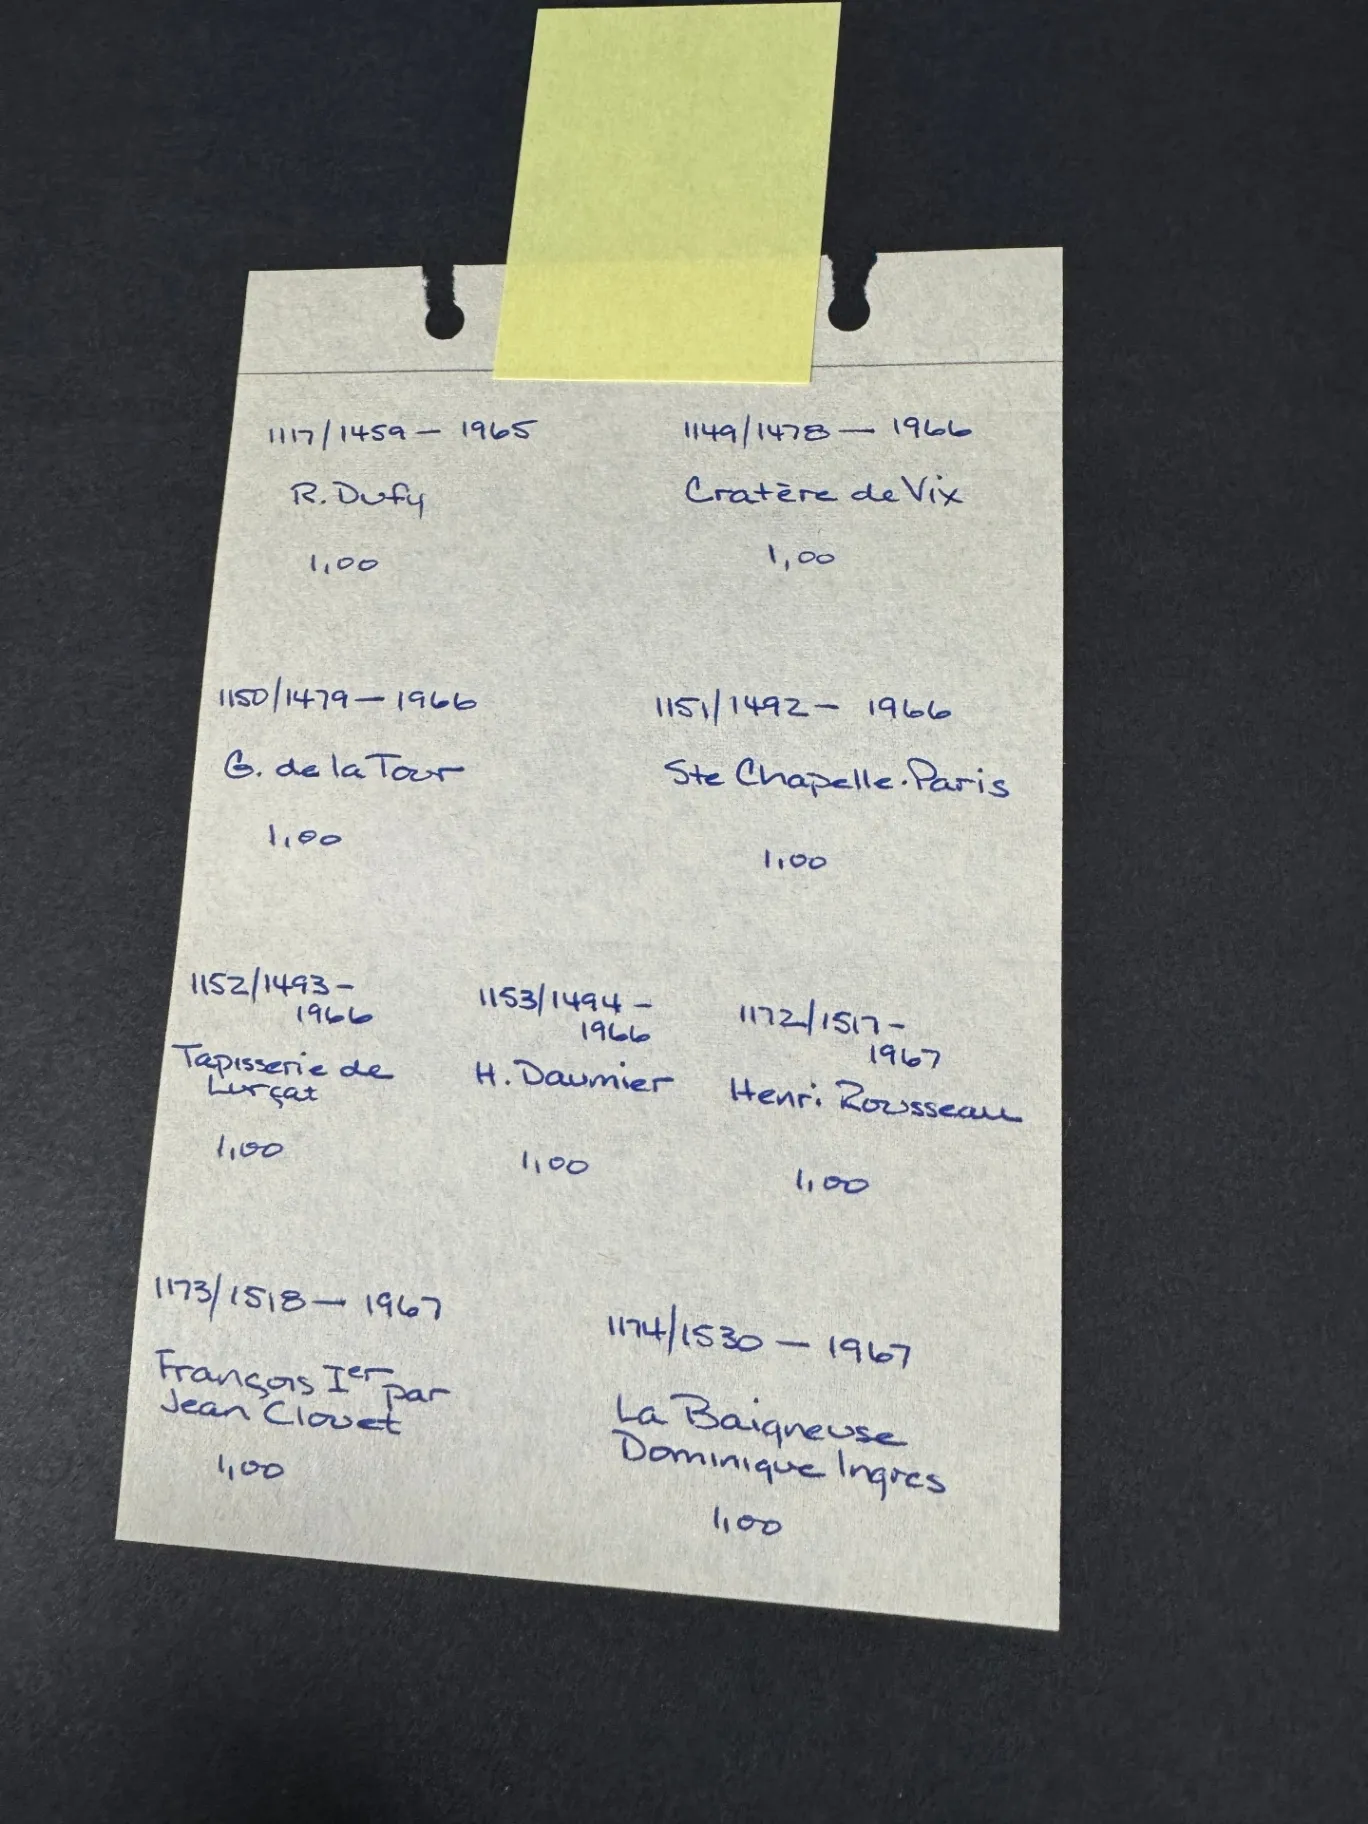 1117/1459 — 1965
R. Dufy
1,00
1149/1478 — 1966
Cratère de Vix
1,00
1150/1479 — 1966
G. de la Tour
1,00
1151/1492 — 1966
Ste Chapelle. Paris
1,00
1152/1493 —
1966
Tapisserie de
Lurçat
1,00
1153/1494 —
1966
H. Daumier
1,00
1172/1517 —
1967
Henri Rousseau
1,00
1173/1518 — 1967
François Ier par
Jean Clouet
1,00
1174/1530 — 1967
La Baigneuse
Dominique Ingres
1,00